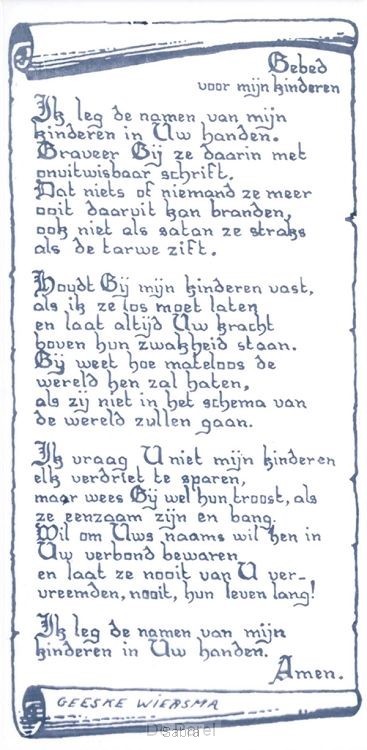 Gebed
voor mijn kinderen
Ik leg de namen van mijn
kinderen in Uw handen.
Graveer Gij ze daarin met
onuitwisbaar schrift.
Dat niets of niemand ze meer
ooit daaruit kan branden,
ook niet als satan ze straks
als de tarwe zift.
Houdt Gij mijn kinderen vast,
als ik ze los moet laten
en laat altijd Uw kracht
boven hun zwakheid staan.
Gij weet hoe mateloos de
wereld hen zal haten,
als zij niet in het schema van
de wereld zullen gaan.
Ik vraag U niet mijn kinderen
elk verdriet te sparen,
maar wees Gij wel hun troost, als
ze eenzaam zijn en bang.
Wil om Uws naams wil hen in
Uw verbond bewaren
en laat ze nooit van U ver-
vreemden, nooit, hun leven lang!
Ik leg de namen van mijn
kinderen in Uw handen.
Amen.
GEESKE WIERSMA